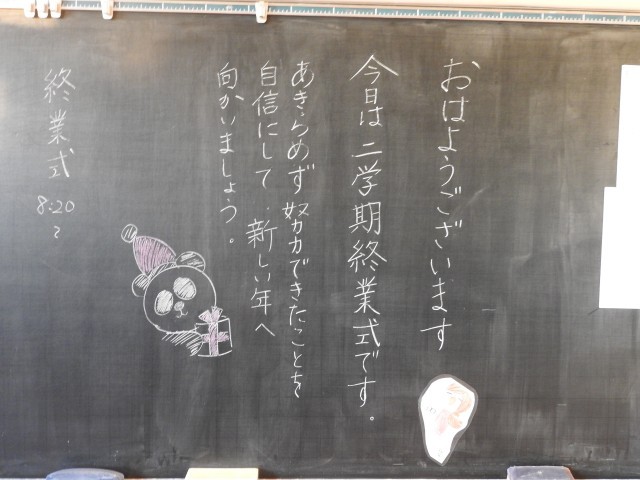 おはようございます
今日は二学期終業式です。
あきらめず努力できたことを
自信にして、新しい年へ
向かいましょう。
終業式
8:20
~